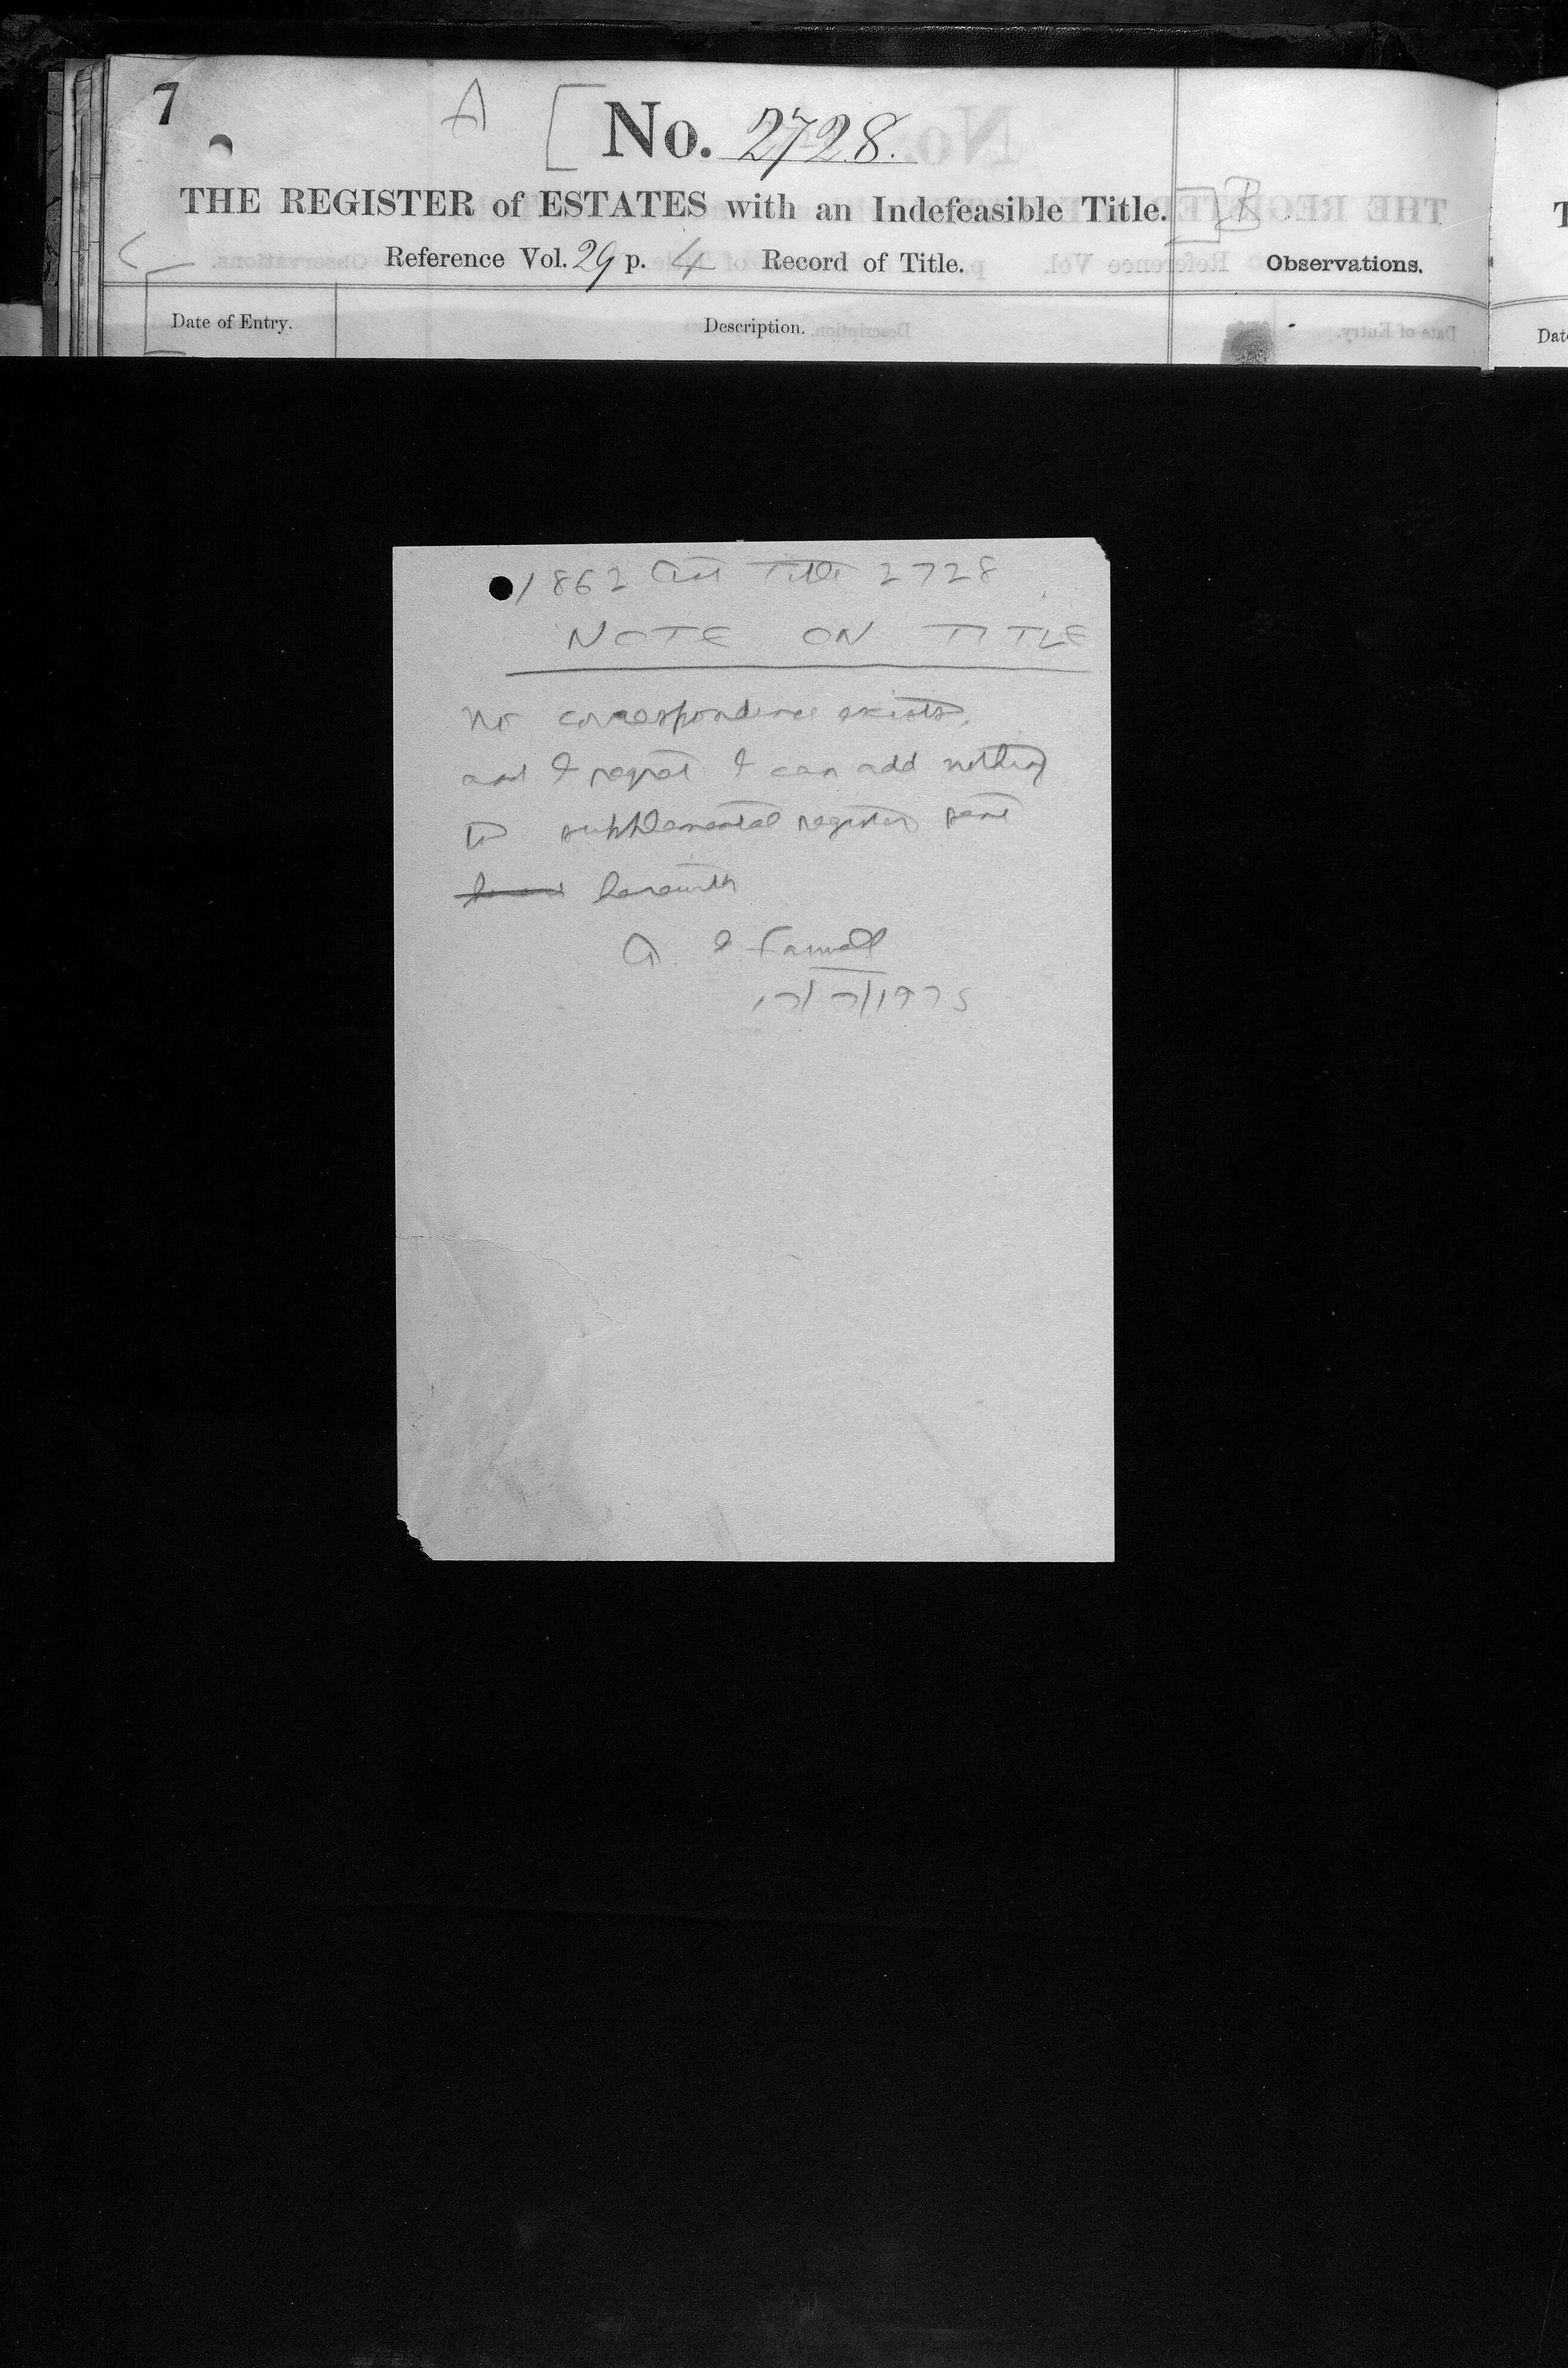 7 A [ No. 2728.
THE REGISTER of ESTATES with an Indefeasible Title. ] B
Reference Vol. 29 p. 4 Record of Title. Observations.
Date of Entry. Description.
Dat
1862 Act Title 2728
NOTE ON TITLE
No correspondence exists,
and I regret I can add nothing
to supplemental register sent
herewith
A. Farwell
17/7/1975